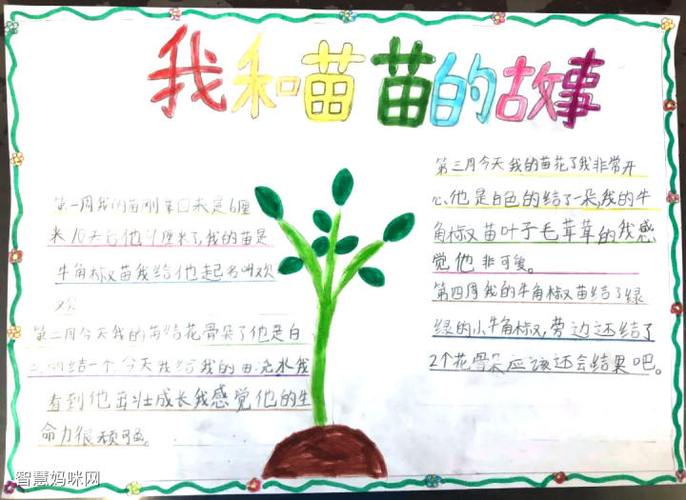 我和喵苗的故事
第一周我的苗刚拿回来是6厘
米10天后他9厘米了,我的苗是
牛角椒苗我给他起名叫欢
欢
第二周今天我的苗结花骨朵了他是白
的结一个今天我给我的苗浇水我
看到他茁壮成长我感觉他的生
命力很顽强。
第三周今天我的苗花了我非常开
心,他是白色的结了一朵,我的牛
角椒苗叶子毛茸茸的我感
觉他非可爱。
第四周我的牛角椒苗结了绿
绿的小牛角椒,旁边还结了
2个花骨朵应该还会结果吧。
智慧妈咪网